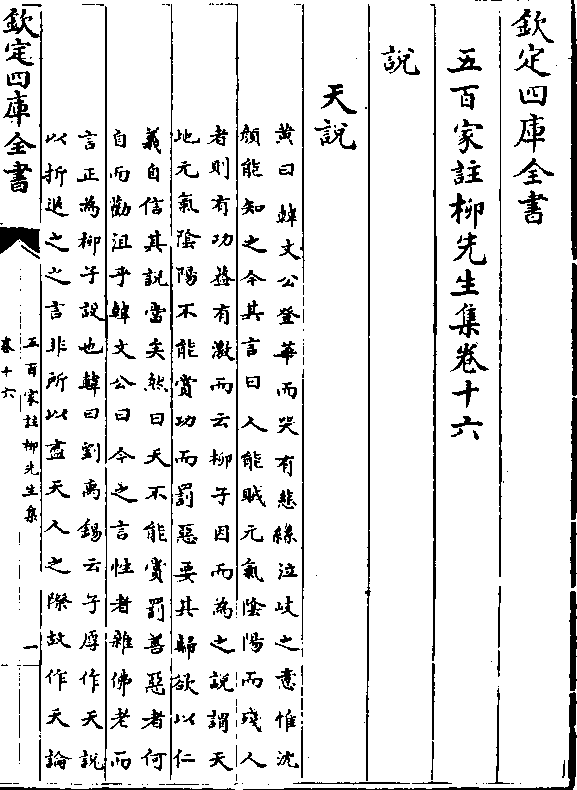 欽定四庫全書
五百家註柳先生集卷十六
說
天說
黄曰韓文公登華而哭有悲絲泣岐之意惟沈
顔能知之今其言曰人能賊元氣陰陽而殘人
者則有功葢有激而云柳子因而為之說謂天
地元氣陰陽不能賞功而罰惡要其歸欲以仁
義自信其說當矣然曰天不能賞罰善惡者何
自而勸沮乎韓文公曰今之言性者雜佛老而
言正為柳子設也韓曰劉禹錫云子厚作天說
以折退之之言非所以盡天人之際故作天論
欽定四庫全書
五百家註柳先生集
卷十六
一